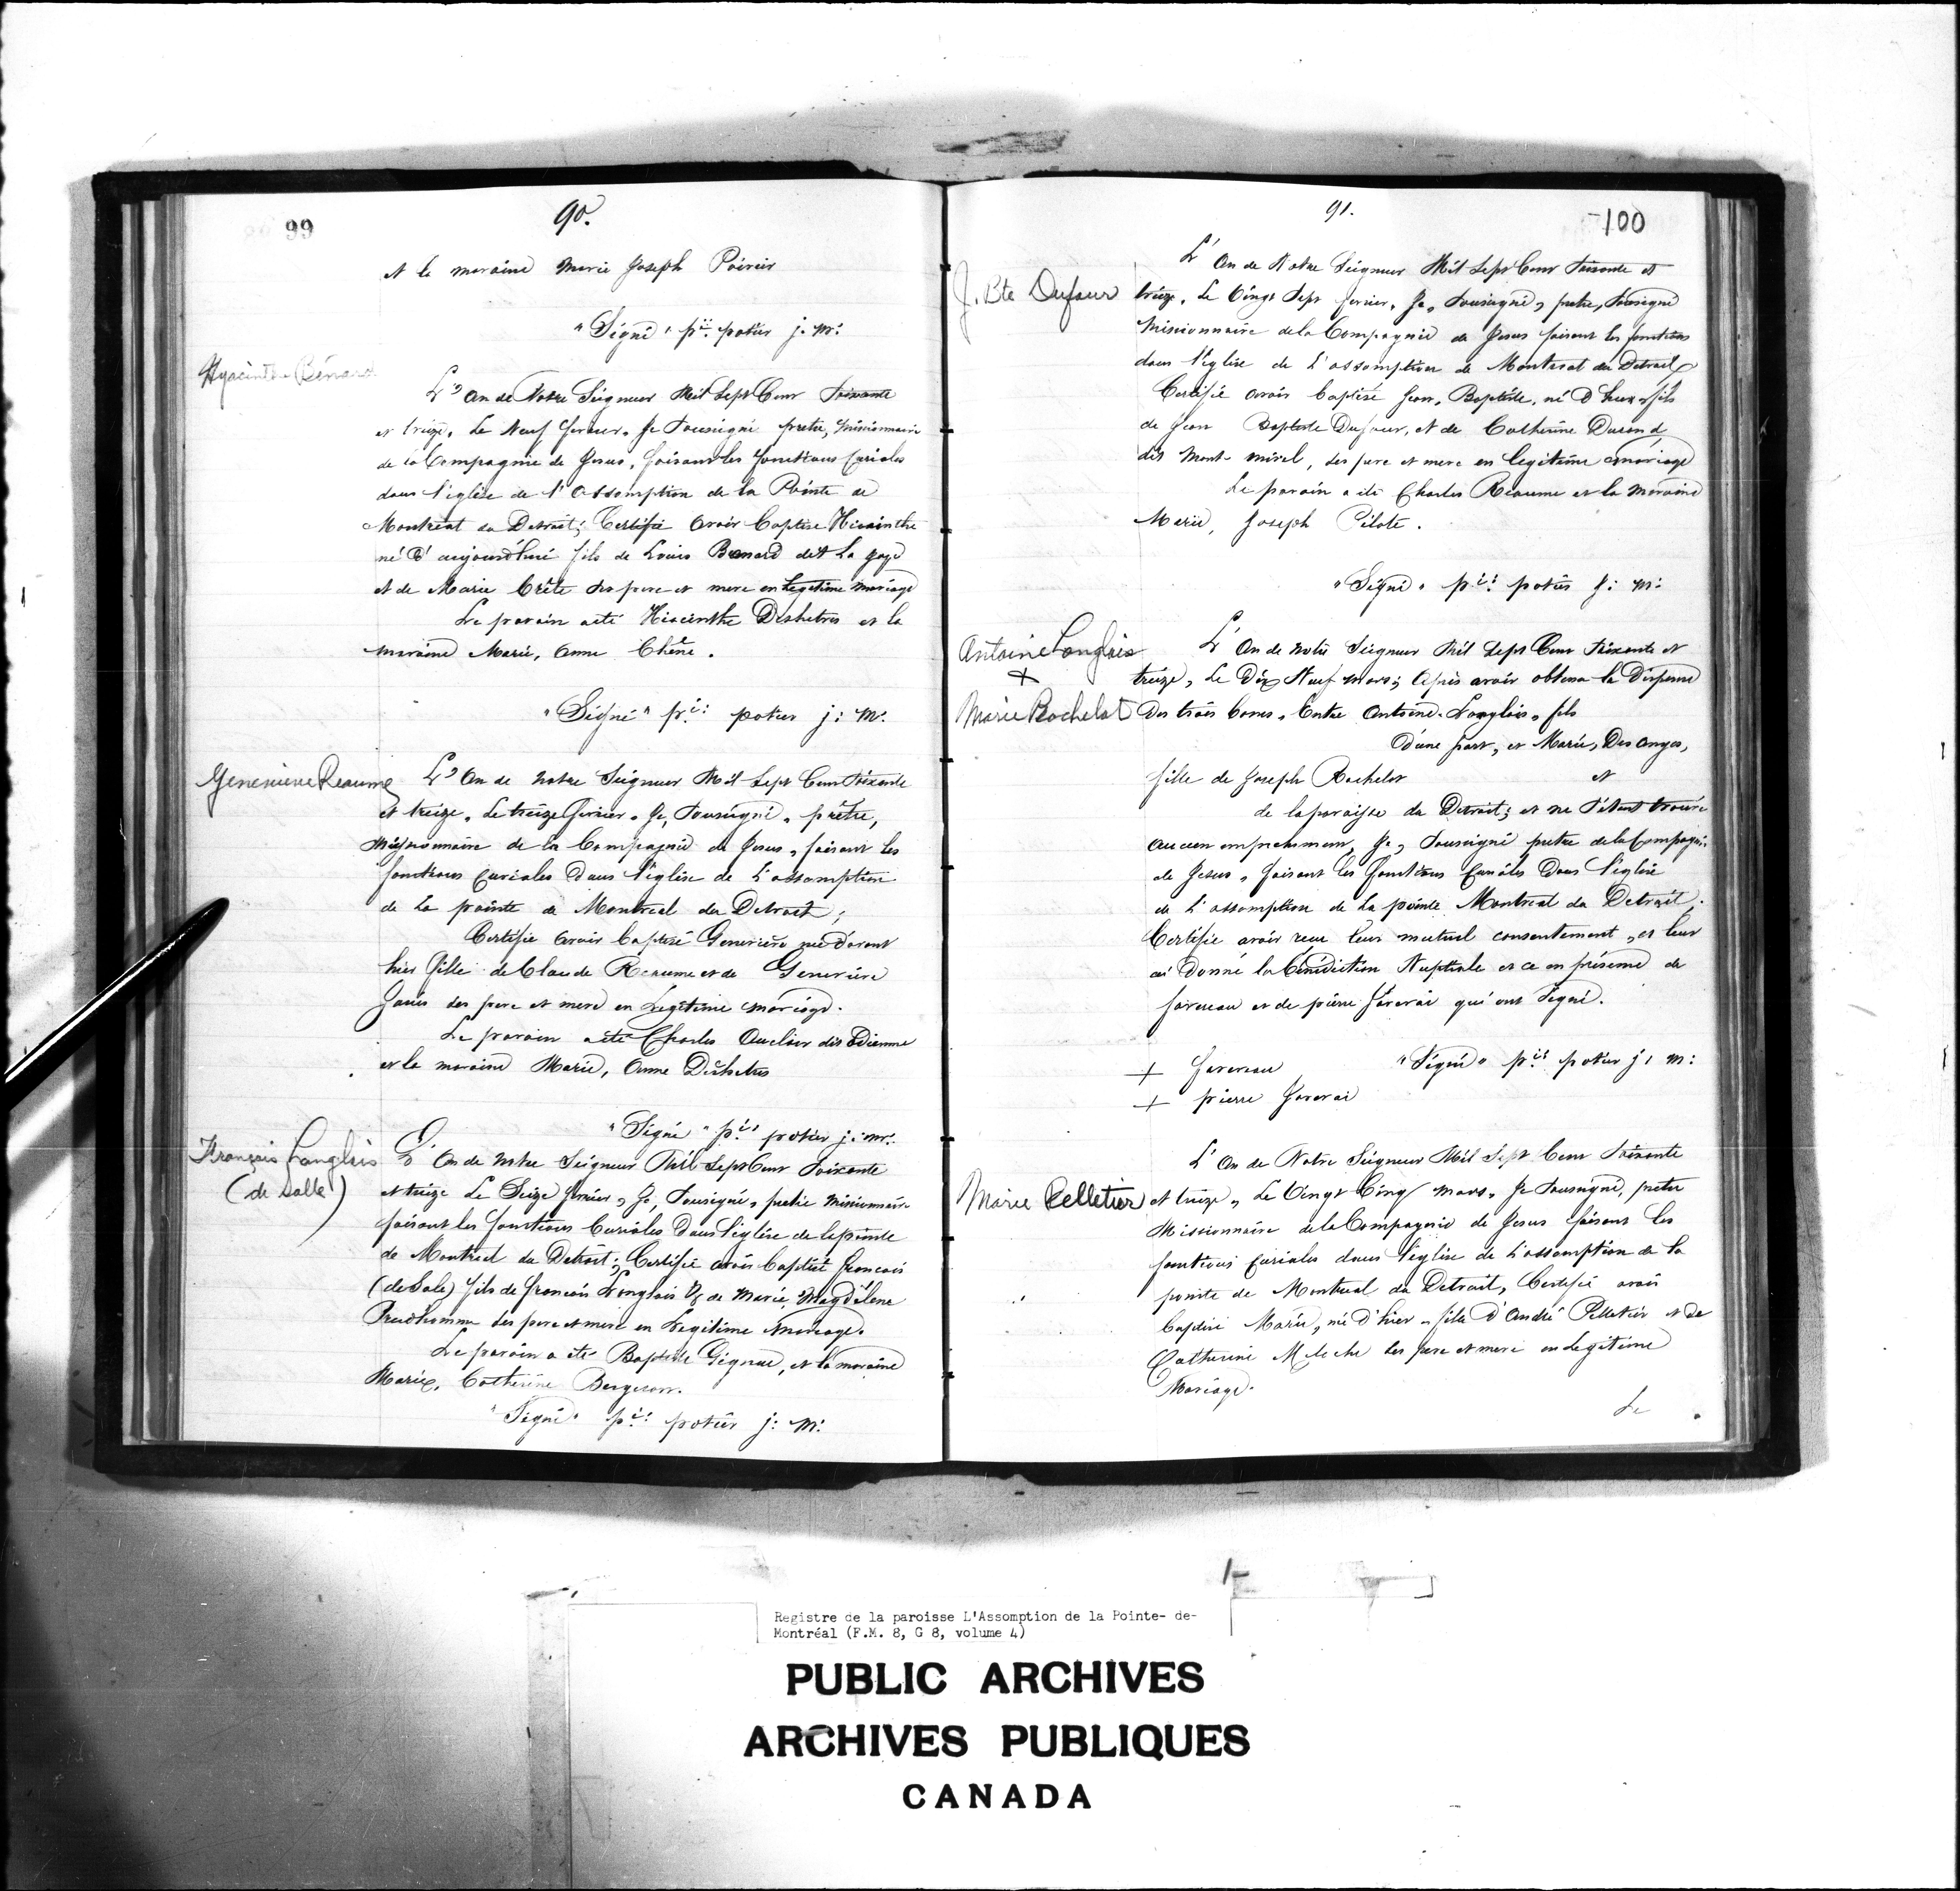 99
90.
et la maraine Marie Joseph Poirier
"Signé" pre potier j. m:
Hyacinthe Bénard
L'An de Notre Seigneur Mil Sept Cent Soixante
et treize, Le Neuf fevrier, Je Soussigné pretre, missionnaire
de la Compagnie de Jesus, faisant les fonctions Curiales
dans l'église de l'Assomption de la Pointe de
Montreal du Detroit; Certifie avoir Baptise Hiacinthe
né d'aujourd'hui fils de Louis Benard dit La
et de Marie Crête Ses pere et mere en Legitime mariage
Le parain a eté Hiacinthe Deshetres et la
maraine Marie, Anne Chêne.
"Signé" pre: potier j: m:
Genevieve Reaume
L'An de notre Seigneur Mil Sept Cent Soixante
et treize, Le treize fevrier, Je, Soussigné, prêtre,
missionnaire de la Compagnie de Jesus, faisant les
fonctions curiales Dans l'église de L'assomption
de La pointe de Montreal du Detroit;
Certifie avoir baptisé Genevieve née d'avant
hier fille de Claude Reaume et de Genevieve
Janis ses pere et mere en Legitime mariage.
Le parain a eté Charles Auclair dit Etienne
et la maraine Marie, Anne Deshetres
"Signé" pre: potier j: m:
François Langlois
(de Salle)
L'An de notre Seigneur Mil Sept Cent Soixante
et treize Le Seize fevrier, Je, Soussigné, pretre missionnaire
faisant les fonctions Curiales Dans l'église de la pointe
de Montreal du Detroit; Certifie avoir baptisé francois
(de Sale) fils de francois Langlois & de Marie, Magdelene
Prudhomme Ses pere et mere en Legitime mariage.
Le parain a eté Baptiste Gignac, et la maraine
Marie, Catherine Bergeron.
"Signé" pre: potier j: m:
91.
100
J. Bte Dufour
L'An de Notre Seigneur Mil Sept Cent Soixante et
treize, Le Vingt Sept fevrier, Je, Soussigné, pretre, Soussigné
Missionnaire de la Compagnie de Jesus faisant les fonctions
dans l'église de L'assomption de Montreal du Detroit
Certifie avoir baptisé Jean, Baptiste, né d'hier, fils
de Jean Baptiste Dufour, et de Catherine Durand
dit Mont-mirel, Ses pere et mere en legitime mariage
Le parain a eté Charles Reaume et la Maraine
Marie, Joseph Pilote.
"Signé" pre: potier j: m:
Antoine Langlois
+
Marie Rochelot
L'An de notre Seigneur Mil Sept Cent Soixante et
treize, Le Dix Neuf mars; Après avoir obtenu la Dispense
Des trois bans, Entre Antoine Langlois, fils
D'une part, et Marie, Des anges,
fille de Joseph Rochelot et
de la paroisse du Detroit; et ne s'étant trouvé
aucun empechement, Je, Soussigné pretre de la Compagnie
de Jesus, faisant les fonctions Curiales Dans l'église
de L'assomption de La pointe Montreal du Detroit.
Certifie avoir reçu leur mutuel consentement, et leur
ai Donné la Bénédiction Nuptiale et ce en présence de
favereau et de pierre favarai qui ont Signé.
+ favereau "Signé" pre: potier j: m:
+ pierre favarai
Marie Pelletier
L'An de Notre Seigneur Mil Sept Cent Soixante
et treize, Le Vingt Cinq mars, Je Soussigné, pretre
Missionnaire de la Compagnie de Jesus faisant Les
fonctions curiales dans l'église de L'assomption de la
pointe de Montreal du Detroit, Certifie avoir
baptisé Marie, née d'hier, fille d'André Pelletier et de
Catherine Meloche Ses pere et mere en Legitime
Mariage.
Le
Registre de la paroisse L'Assomption de la Pointe- de-
Montréal (F.M. 8, G 8, volume 4)
PUBLIC ARCHIVES
ARCHIVES PUBLIQUES
CANADA